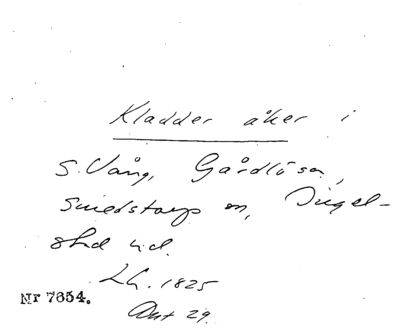 Kladder åker i
S. Vång, Gårdlösa,
Smedstorps sn, Ingel-
stad hd.
Lh. 1825
Akt 29.
Nr 7654.